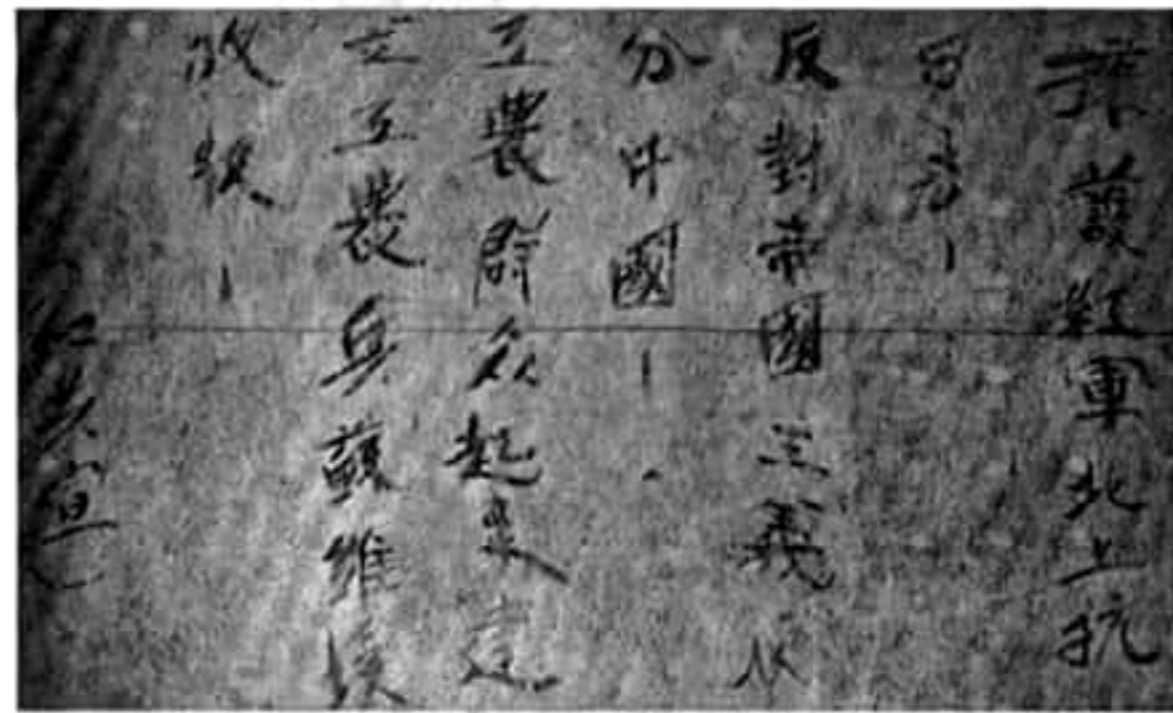 擁護紅軍北上抗
日
反對帝國主義瓜
分中國！
工農群众起來建
立工農兵蘇維埃
政权！
宣